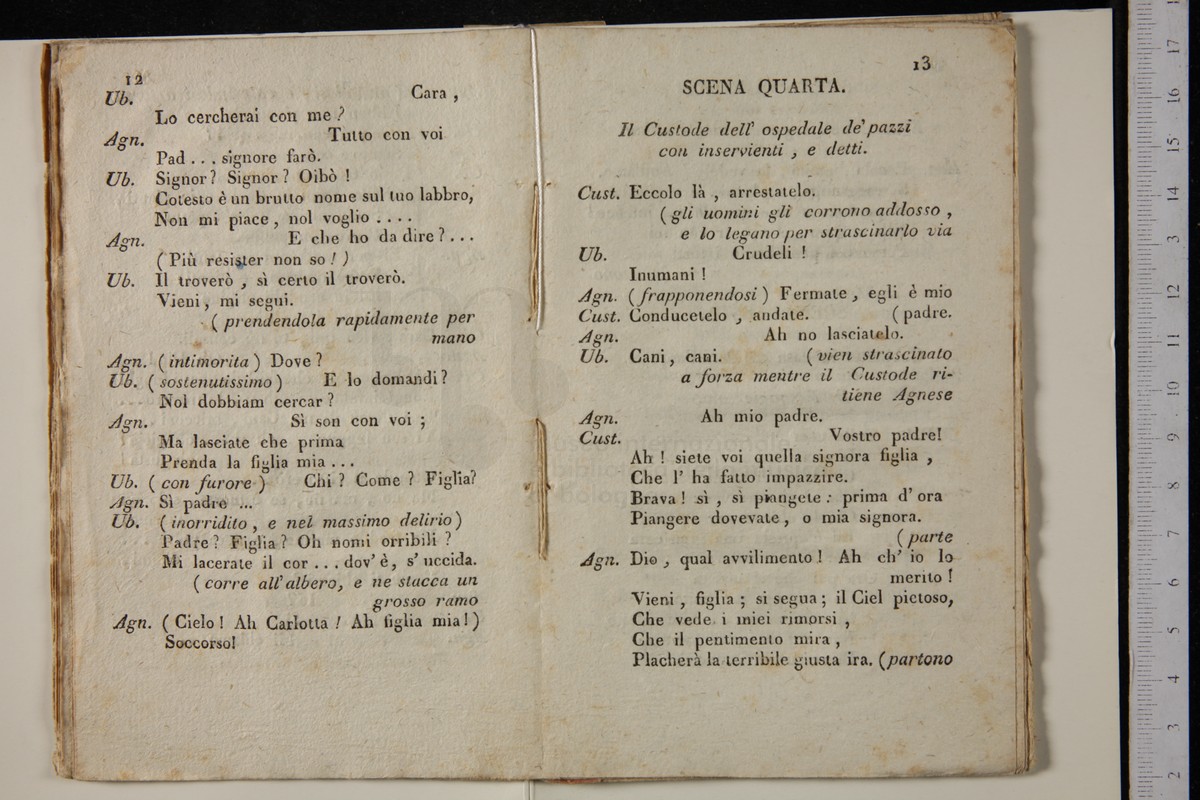 12
Ub. Cara ,
Lo cercherai con me ?
Agn. Tutto con voi
Pad . . . signore farò.
Ub. Signor ? Signor ? Oibò !
Cotesto è un brutto nome sul tuo labbro,
Non mi piace , nol voglio . . . .
Agn. E che ho da dire ? . . .
( Più resister non so ! )
Ub. Il troverò , sì certo il troverò.
Vieni , mi segui.
( prendendola rapidamente per
mano
Agn. ( intimorita ) Dove ?
Ub. ( sostenutissimo ) E lo domandi ?
Nol dobbiam cercar ?
Agn. Sì son con voi ;
Ma lasciate che prima
Prenda la figlia mia . . .
Ub. ( con furore ) Chi ? Come ? Figlia?
Agn. Sì padre ...
Ub. ( inorridito , e nel massimo delirio )
Padre ? Figlia ? Oh nomi orribili ?
Mi lacerate il cor . . . dov' è, s' uccida.
( corre all' albero, e ne stacca un
grosso ramo
Agn. ( Cielo ! Ah Carlotta ! Ah figlia mia ! )
Soccorso!
13
SCENA QUARTA.
Il Custode dell' ospedale de' pazzi
con inservienti , e detti.
Cust. Eccolo là , arrestatelo.
( gli uomini gli corrono addosso ,
e lo legano per strascinarlo via
Ub. Crudeli !
Inumani !
Agn. ( frapponendosi ) Fermate , egli è mio
Cust. Conducetelo , andate. ( padre.
Agn. Ah no lasciatelo.
Ub. Cani , cani. ( vien strascinato
a forza mentre il Custode ri-
tiene Agnese
Agn. Ah mio padre.
Cust. Vostro padre!
Ah ! siete voi quella signora figlia ,
Che l' ha fatto impazzire.
Brava ! sì , sì piangete : prima d' ora
Piangere dovevate , o mia signora.
( parte
Agn. Dio , qual avvilimento ! Ah ch' io lo
merito !
Vieni , figlia ; si segua ; il Ciel pietoso,
Che vede i miei rimorsi ,
Che il pentimento mira ,
Placherà la terribile giusta ira. (partono
17
16
15
14
13
12
11
10
9
8
7
6
5
4
3
2